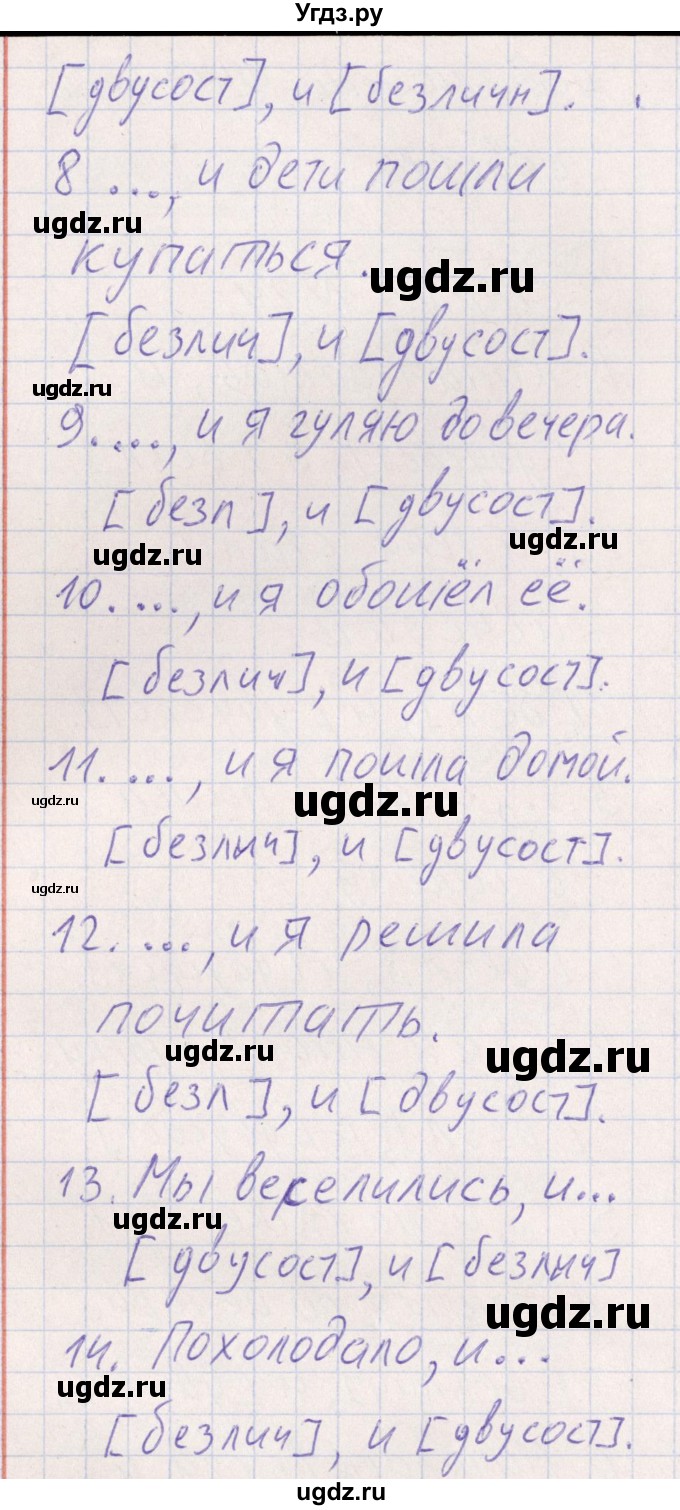 Угдз.ру
[двусост], и [безличн].
8 ..., и дети пошли
ugdz.ru
купаться.
ugdz.ru
[безлич], и [двусост].
ugdz.ru
9. ..., и я гуляю до вечера.
[безл], и [двусост].
ugdz.ru
ugdz.ru
10. ..., и я обошёл её.
[безлич], и [двусост].
11. ..., и я пошла домой.
ugdz.ru
ugdz.ru
[безлич], и [двусост].
ugdz.ru
12. ..., и я решила
почитать.
ugdz.ru
ugdz.ru
[безл], и [двусост].
13. Мы веселились, и...
ugdz.ru
[двусост], и [безлич]
ugdz.ru
14. Похолодало, и...
ugdz.ru
[безлич], и [двусост].
ugdz.ru